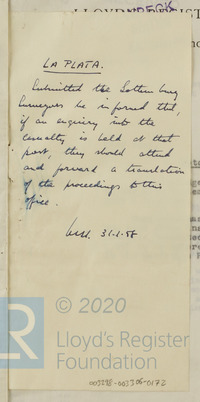 LLOYD'S REGIST
WRECK
LA PLATA.
Submitted the Gothenburg
Surveyors be informed that,
if an enquiry into the
casualty is held at that
port, they should attend
and forward a translation
of the proceedings to this
office.
31.1.58
© 2020
Lloyd's Register
Foundation